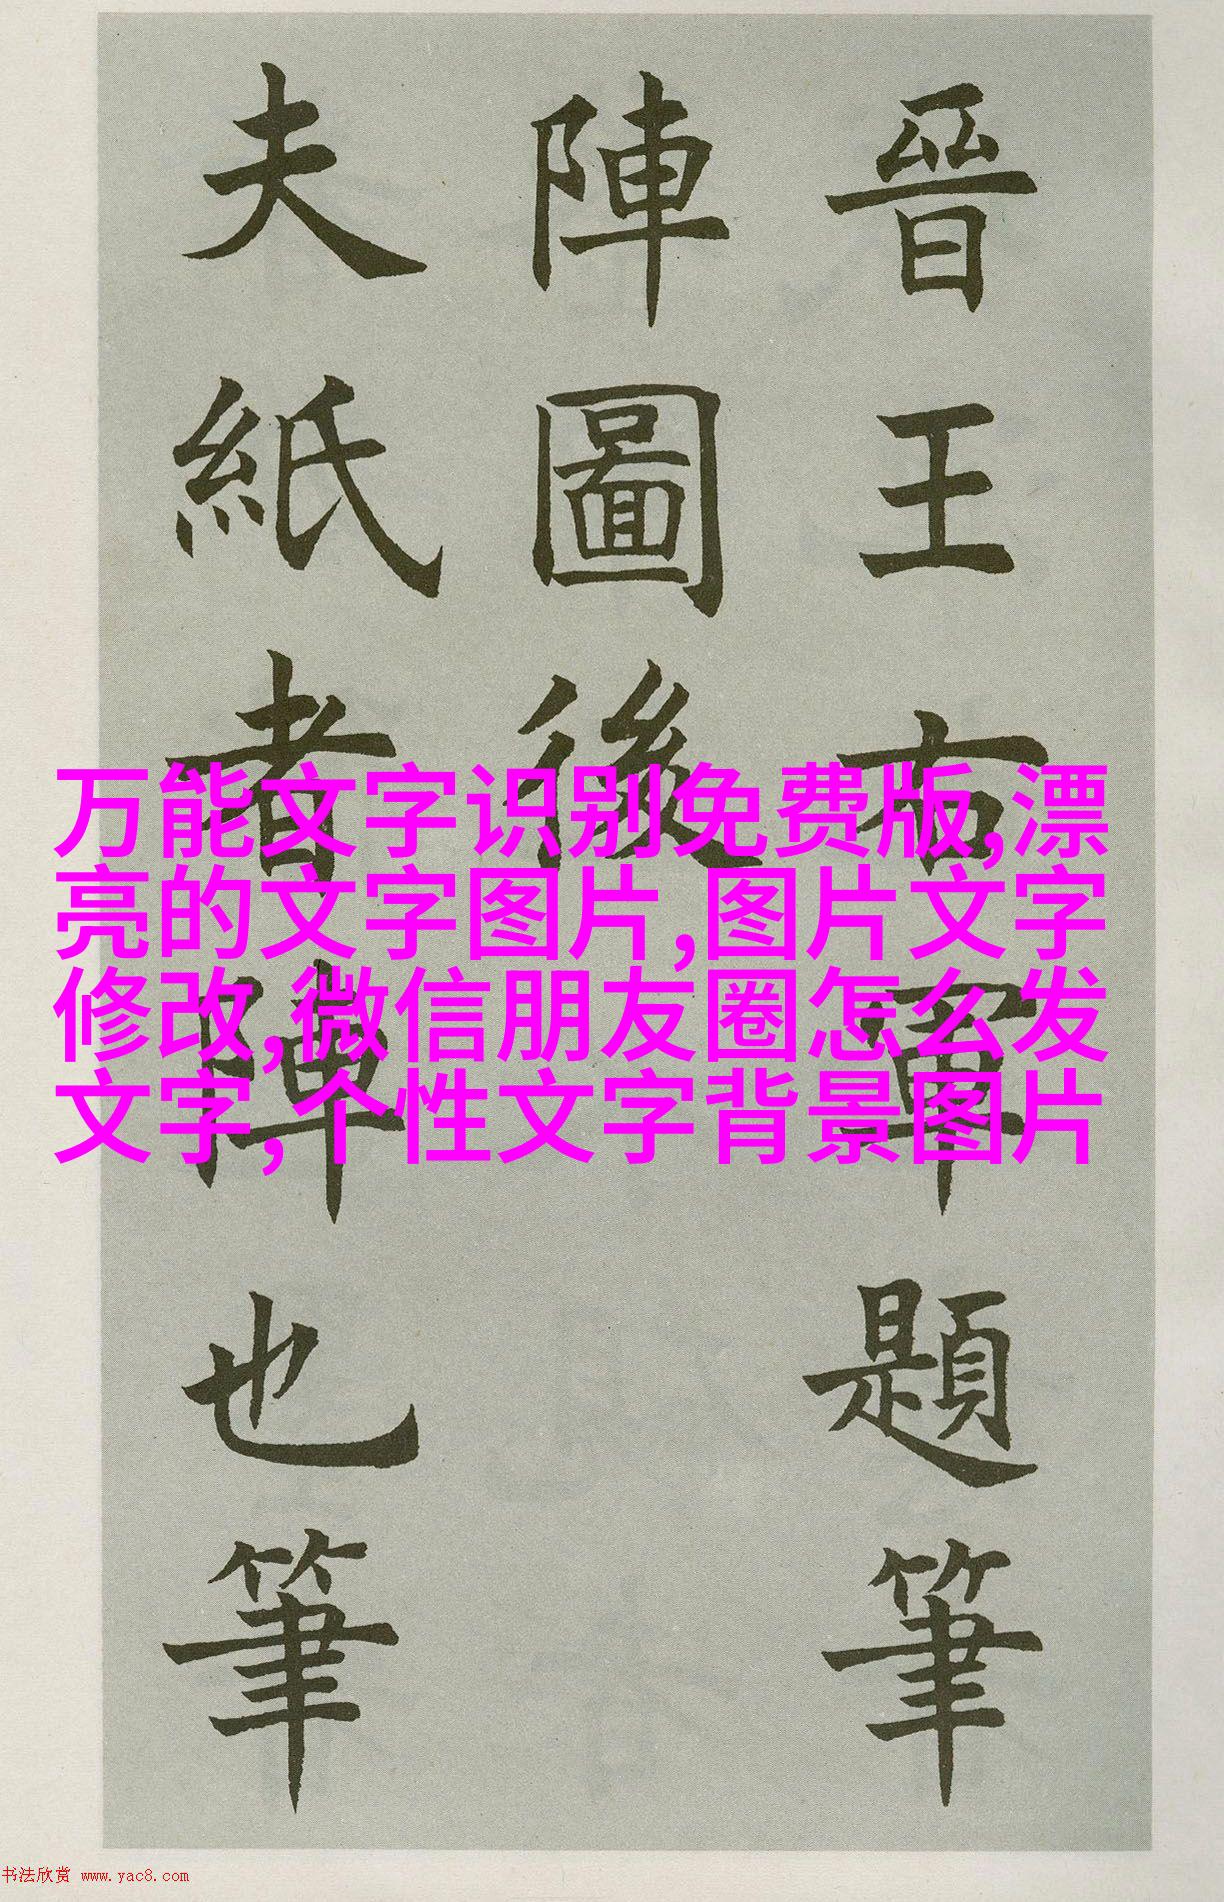 晉王右軍題筆
陣圖後
夫紙者陣也筆
万能文字识别免费版,漂
亮的文字图片,图片文字
修改,微信朋友圈怎么发
文字,个性文字背景图片
书法欣赏 www.yac8.com